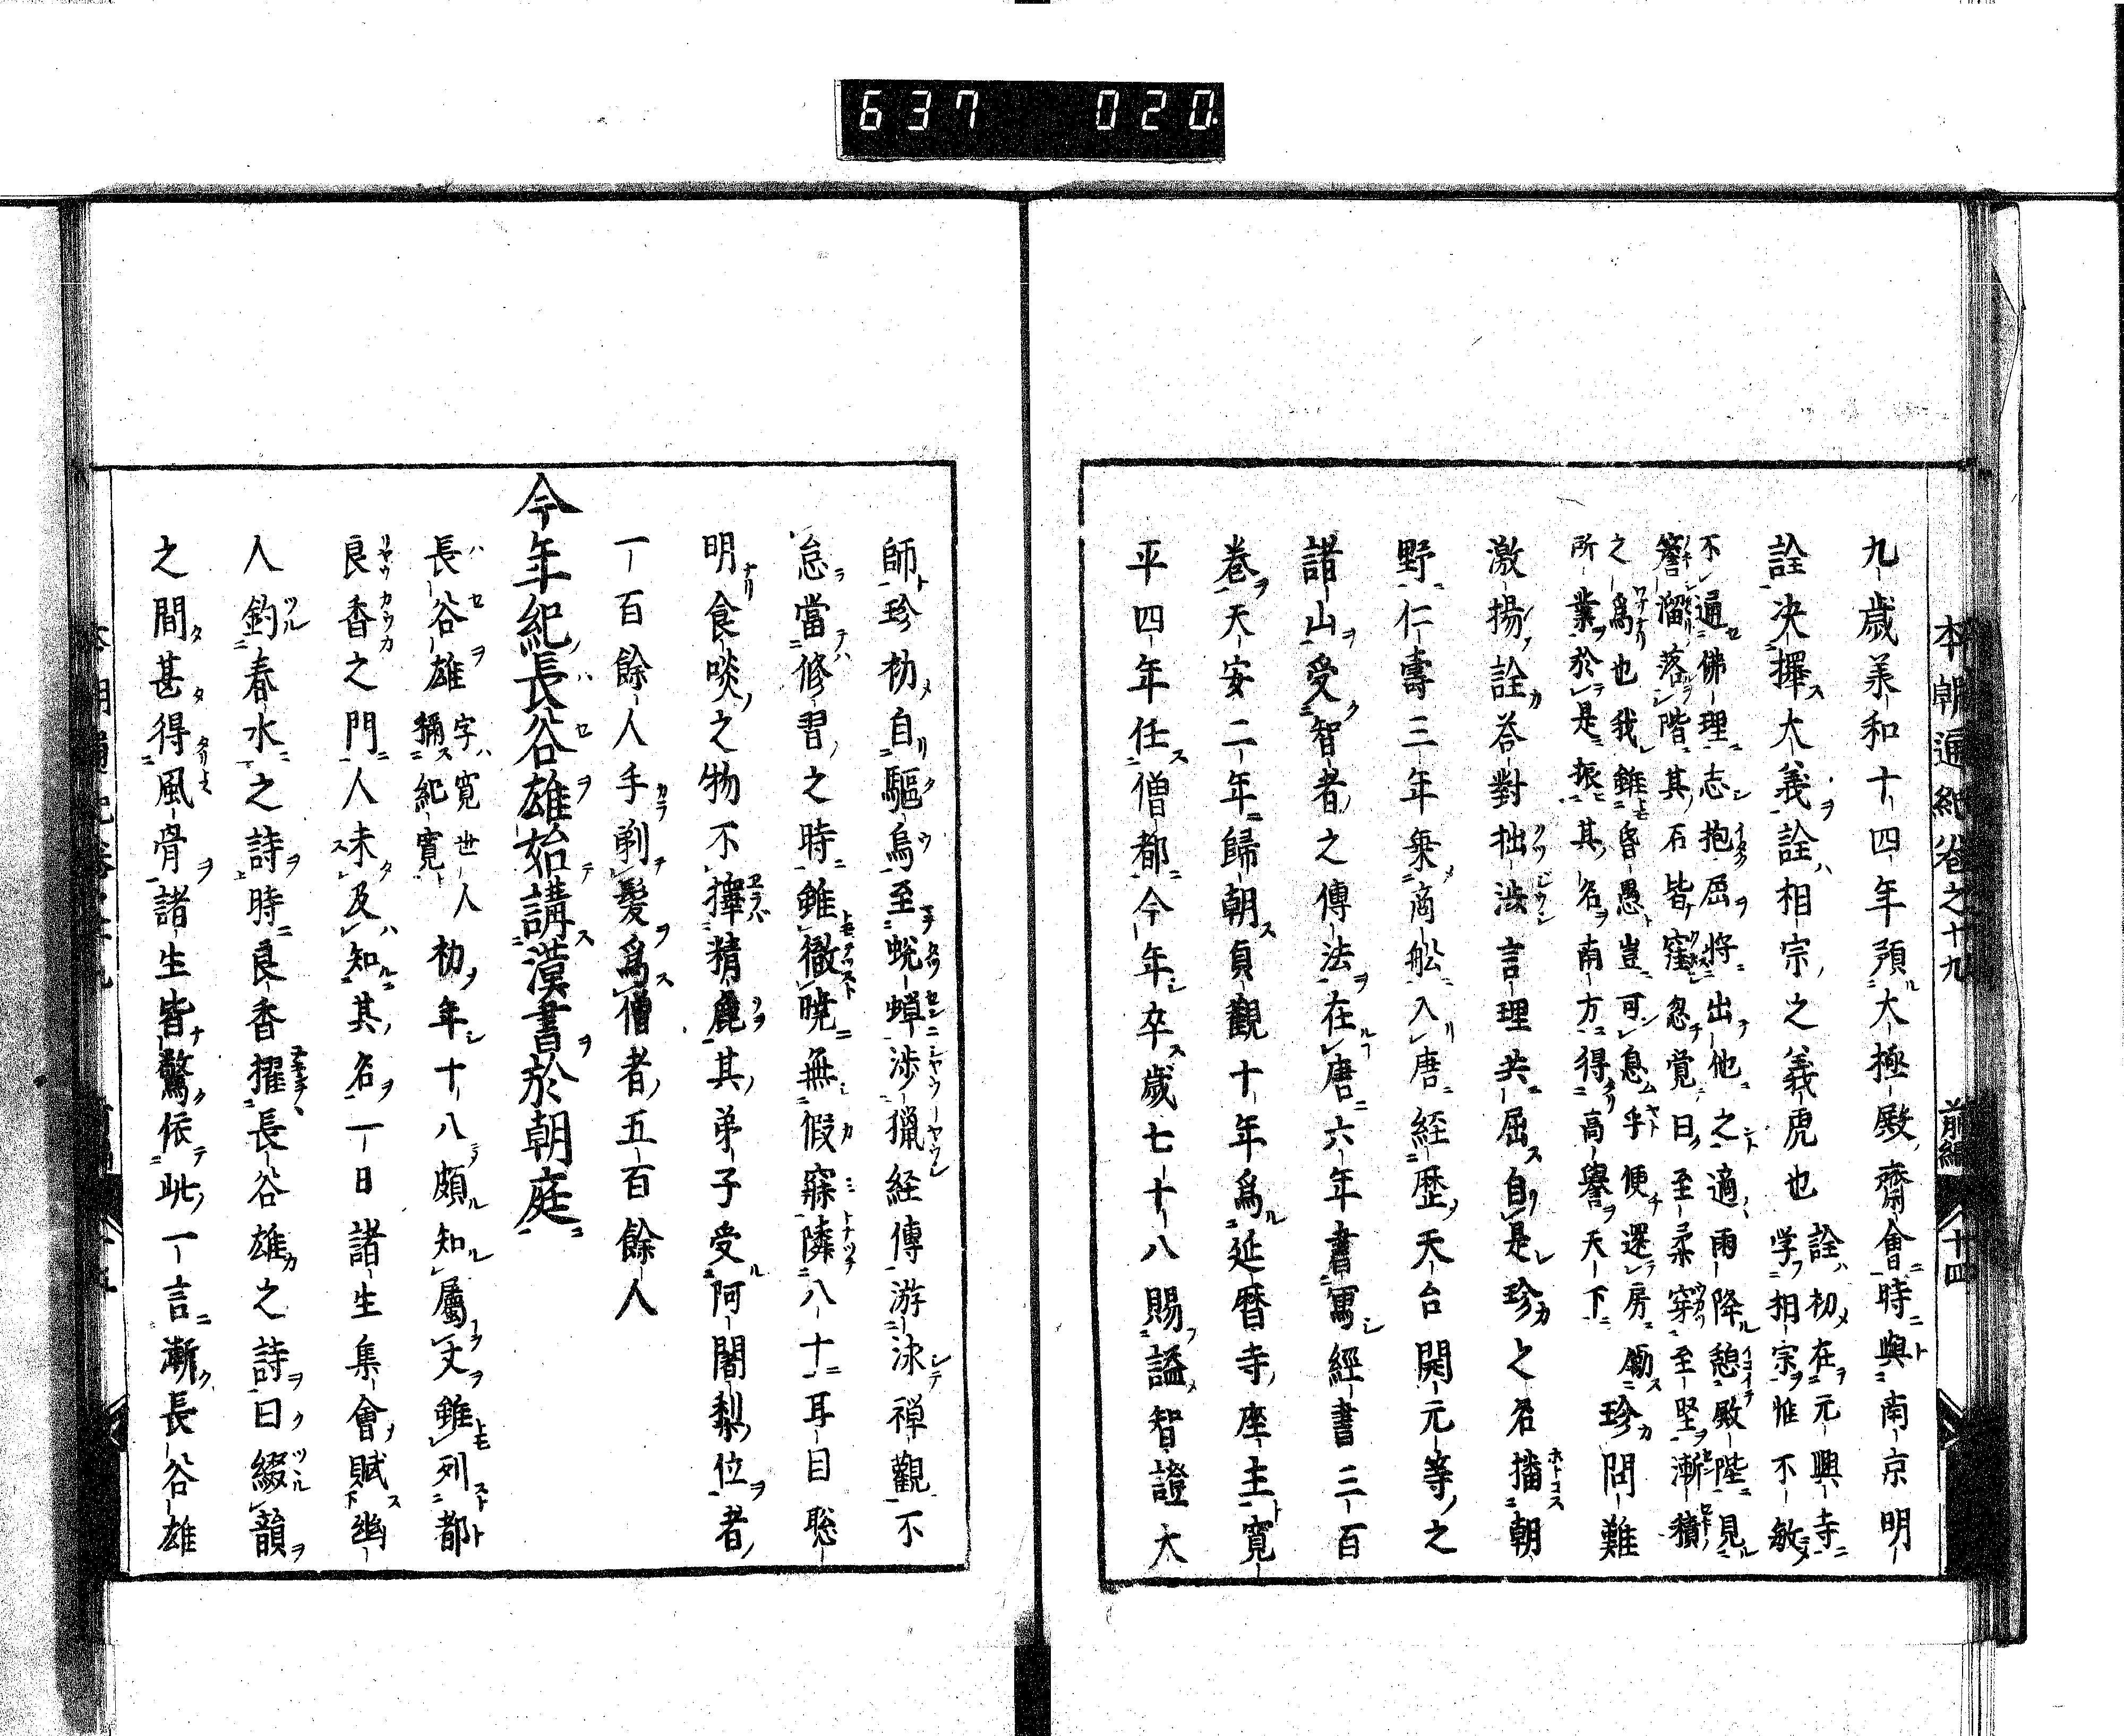 637 020
本朝通紀卷之十九 前編 十四
九歲羕和十四年預大極殿齋會時與南京明
詮决擇大義詮相宗之義虎也 詮初在元興寺学相宗惟不敏
不通佛理志抱屈将出他之適雨降憩殿陛見
簷溜落階其石皆窪忽覚曰至柔穿至堅漸積
之爲也我雖昏愚豈可息乎便還房勵
所業於是振其名南方得高譽天下 珍問難
激揚詮荅對拙澁言理共屈自是珍之名播朝
野仁壽三年乗商舩入唐経歴天台開元等之
諸山受智者之傳法在唐六年書寫經書三百
卷天安二年歸朝貞觀十年爲延暦寺座主寛
平四年任僧都今年卒歲七十八賜謚智證大
師珍初自驅烏至蛻蟬渉獵経傳游泳禅觀不
怠當修習之時雖徹暁無假寐隣八十耳目聡
明食啖之物不擇精麁其弟子受阿闍梨位者
一百餘人手剃髮爲僧者五百餘人
今年紀長谷雄始講漢書於朝庭
長谷雄 字寛世人稱紀寛 初年十八頗知屬文雖列都
良香之門人未及知其名一日諸生集會賦幽
人釣春水之詩時良香擢長谷雄之詩曰綴韻
之間甚得風骨諸生皆驚依此一言漸長谷雄